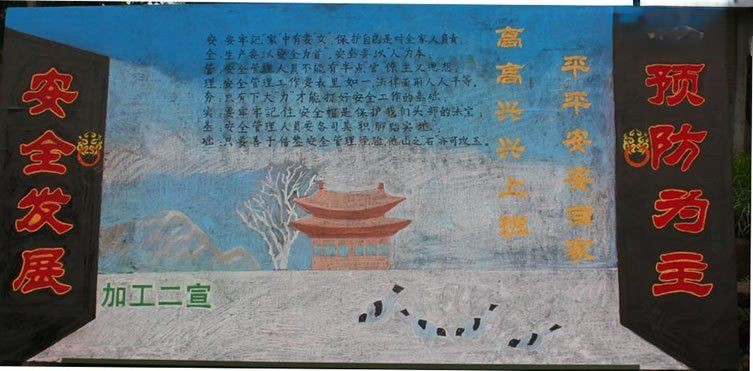 安全发展
安：要牢记家中有妻女，保护自己是对全家人负责。
全：生产要以安全为首，安全要以人为本。
管：安全管理人员不能有半点官僚主义思想。
理：安全管理工作要表里如一，法律面前人人平等。
务：只有下大力才能打好安全工作的基础。
实：要牢牢记住安全帽是保护我们头部的法宝。
基：安全管理人员要各司其职，脚踏实地。
础：只要善于借鉴安全管理经验，他山之石亦可攻玉。
高高兴兴上班
平平安安回家
预防为主
加工二宣